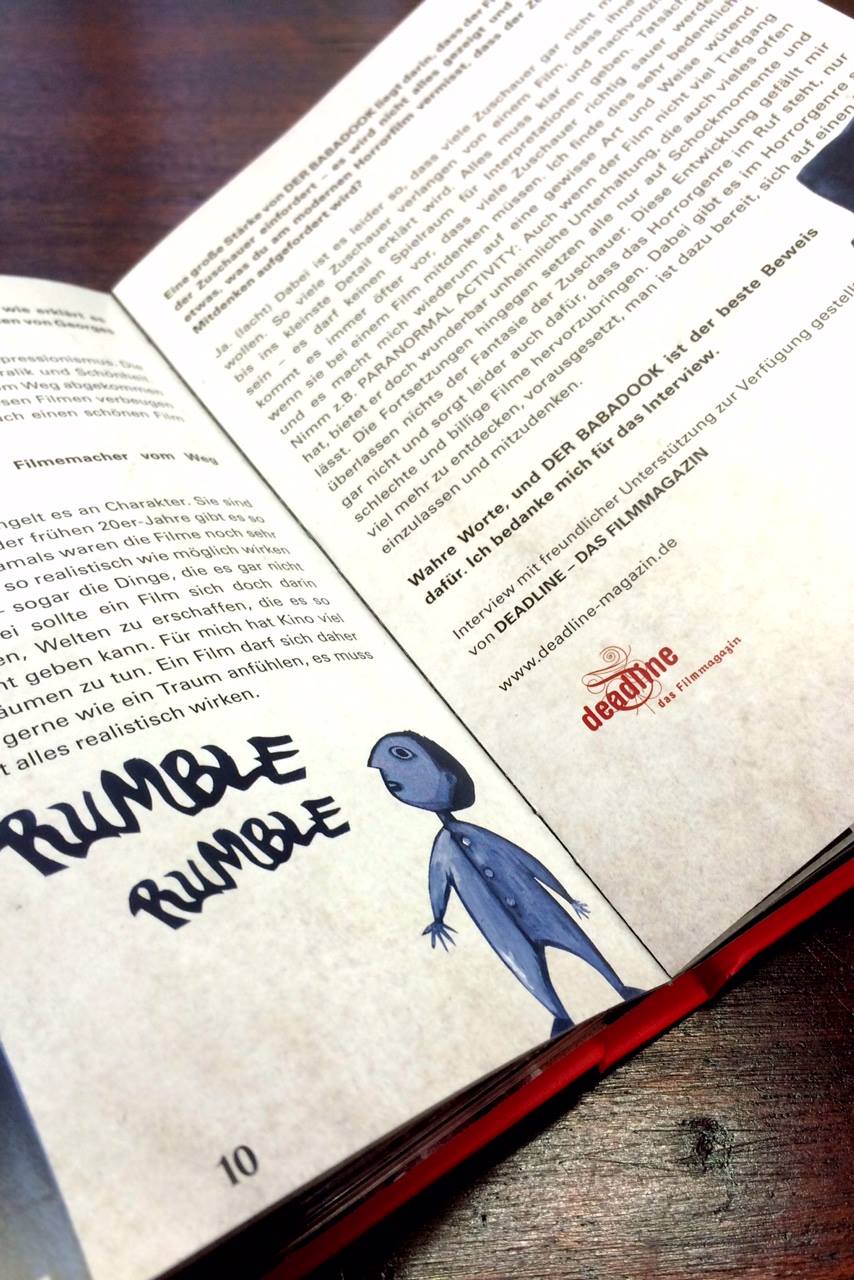 wie erklärt es
en von Georges
pressionismus. Die
ralik und Schönheit
om Weg abgekommen
sen Filmen verbeugen
ch einen schönen Film
Filmemacher vom Weg
ngelt es an Charakter. Sie sind
der frühen 20er-Jahre gibt es so
amals waren die Filme noch sehr
so realistisch wie möglich wirken
sogar die Dinge, die es gar nicht
ei sollte ein Film sich doch darin
en, Welten zu erschaffen, die es so
nt geben kann. Für mich hat Kino viel
äumen zu tun. Ein Film darf sich daher
gerne wie ein Traum anfühlen, es muss
t alles realistisch wirken.
RUMBLE
RUMBLE
10
Eine große Stärke von DER BABADOOK liegt darin, dass der
der Zuschauer einfordert – es wird nicht alles gezeigt und
etwas, was du am modernen Horrorfilm vermisst, dass der
Mitdenken aufgefordert wird?
Ja. (lacht) Dabei ist es leider so, dass viele Zuschauer gar nicht
wollen. So viele Zuschauer verlangen von einem Film, dass ihnen
bis ins kleinste Detail erklärt wird. Alles muss klar und nachvollziehbar
sein – es darf keinen Spielraum für Interpretationen geben. Tatsächlich
kommt es immer öfter vor, dass viele Zuschauer richtig sauer werden,
wenn sie bei einem Film mitdenken müssen. Ich finde dies sehr bedenklich
und es macht mich wiederum auf eine gewisse Art und Weise wütend.
Nimm z.B. PARANORMAL ACTIVITY: Auch wenn der Film nicht viel Tiefgang
hat, bietet er doch wunderbar unheimliche Unterhaltung, die auch vieles offen
lässt. Die Fortsetzungen hingegen setzen alle nur auf Schockmomente und
überlassen nichts der Fantasie der Zuschauer. Diese Entwicklung gefällt mir
gar nicht und sorgt leider auch dafür, dass das Horrorgenre im Ruf steht, nur
schlechte und billige Filme hervorzubringen. Dabei gibt es im Horrorgenre
viel mehr zu entdecken, vorausgesetzt, man ist dazu bereit, sich auf einen
einzulassen und mitzudenken.
Wahre Worte, und DER BABADOOK ist der beste Beweis
dafür. Ich bedanke mich für das Interview.
Interview mit freundlicher Unterstützung zur Verfügung gestell
von DEADLINE – DAS FILMMAGAZIN
www.deadline-magazin.de
deadline
das Filmmagazin